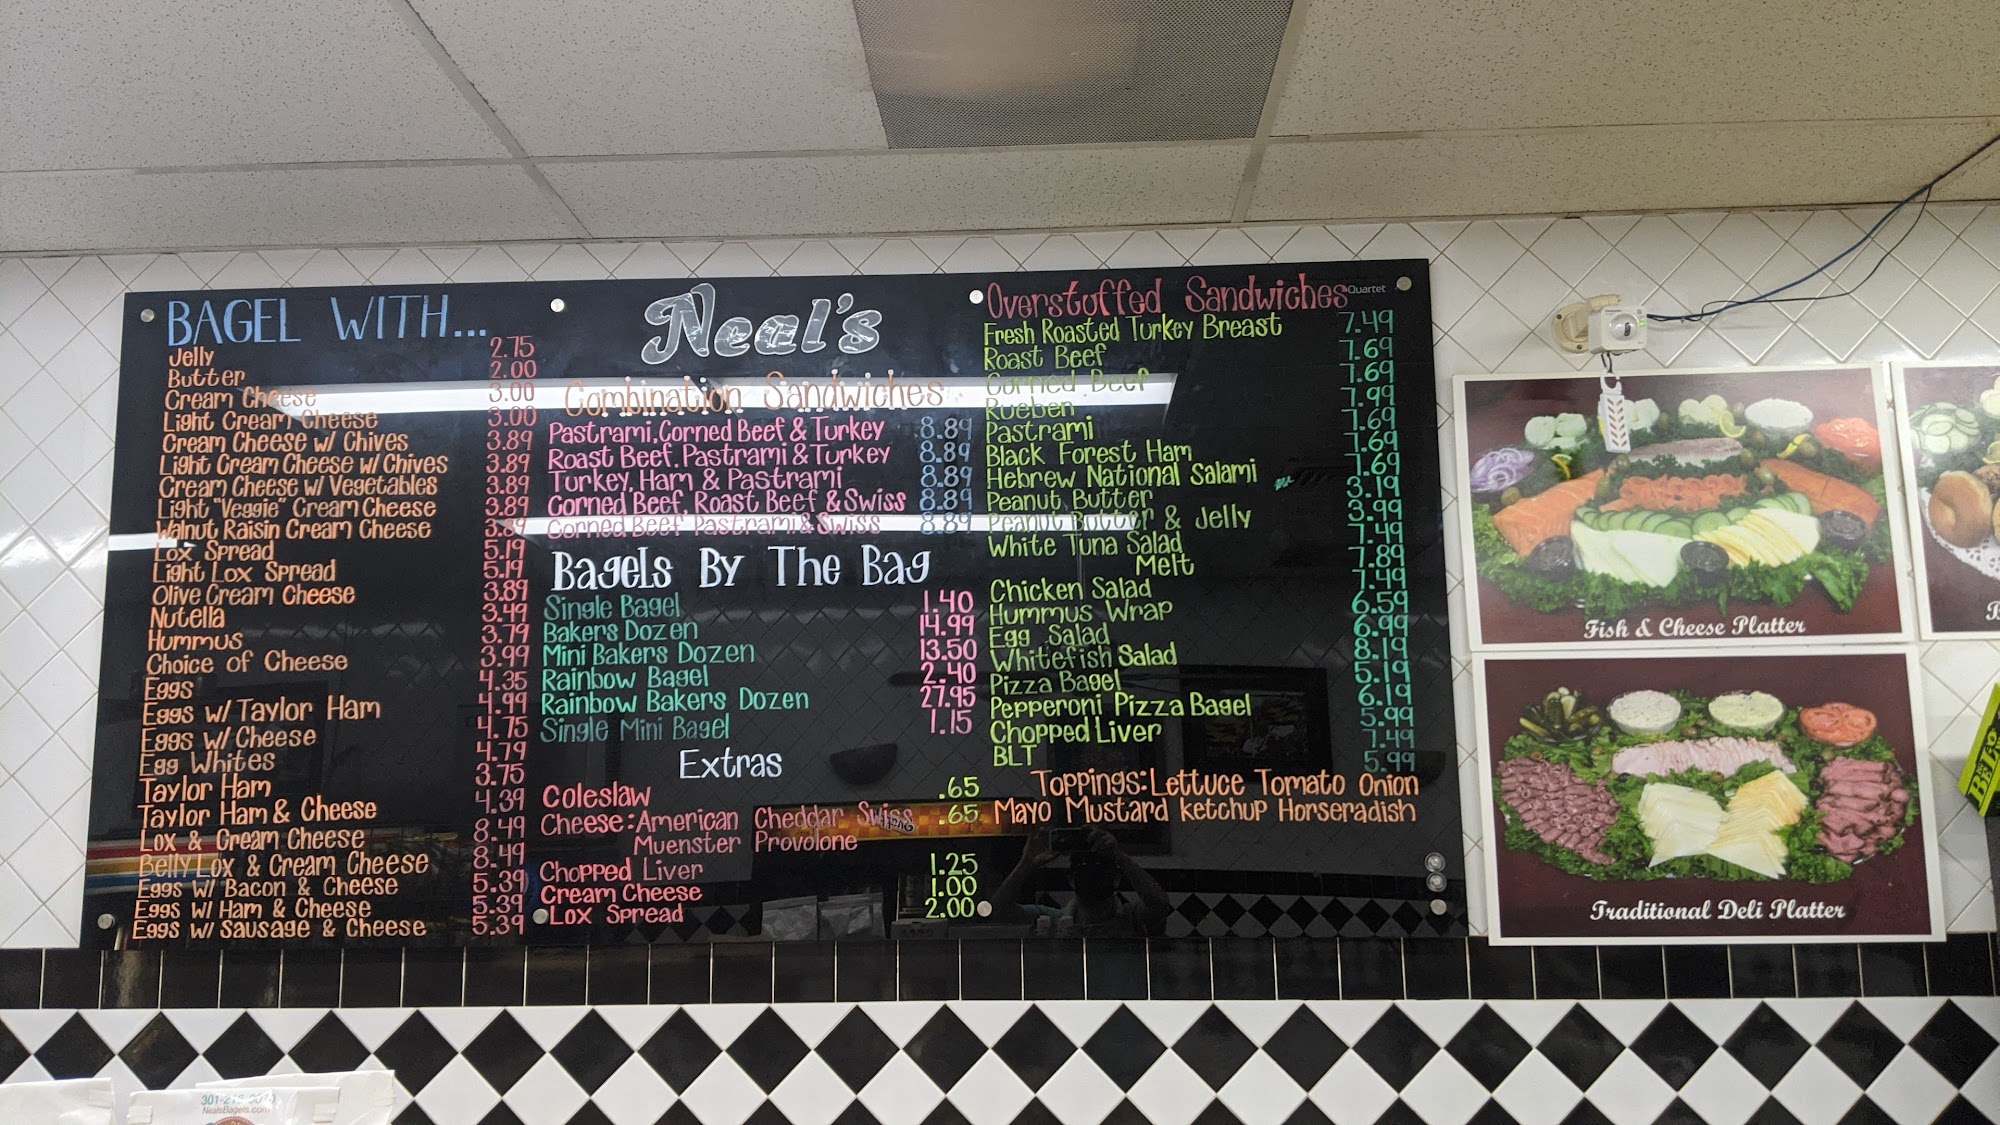 BAGEL WITH...
Jelly 2.75
Butter 2.00
Cream Cheese 3.00
Light Cream Cheese 3.00
Cream Cheese w/ Chives 3.89
Light Cream Cheese w/ Chives 3.89
Cream Cheese w/ Vegetables 3.89
Light "Veggie" Cream Cheese 3.89
Walnut Raisin Cream Cheese 3.89
Lox Spread 5.19
Light Lox Spread 5.19
Olive Cream Cheese 3.89
Nutella 3.49
Hummus 3.79
Choice of Cheese 3.99
Eggs 4.35
Eggs w/ Taylor Ham 4.99
Eggs w/ Cheese 4.75
Egg Whites 4.79
Taylor Ham 3.75
Taylor Ham & Cheese 4.39
Lox & Cream Cheese 8.49
Belly Lox & Cream Cheese 8.49
Eggs w/ Bacon & Cheese 5.39
Eggs w/ Ham & Cheese 5.39
Eggs w/ Sausage & Cheese 5.39
Neal's
Combination Sandwiches
Pastrami, Corned Beef & Turkey 8.89
Roast Beef, Pastrami & Turkey 8.89
Turkey, Ham & Pastrami 8.89
Corned Beef, Roast Beef & Swiss 8.89
Corned Beef Pastrami & Swiss 8.89
Bagels By The Bag
Single Bagel 1.40
Bakers Dozen 14.99
Mini Bakers Dozen 13.50
Rainbow Bagel 2.40
Rainbow Bakers Dozen 27.95
Single Mini Bagel 1.15
Extras
Coleslaw .65
Cheese: American Cheddar Swiss .65
Muenster Provolone
Chopped Liver 1.25
Cream Cheese 1.00
Lox Spread 2.00
Overstuffed Sandwiches
Quartet
Fresh Roasted Turkey Breast 7.49
Roast Beef 7.69
Corned Beef 7.69
Rueben 7.99
Pastrami 7.69
Black Forest Ham 7.69
Hebrew National Salami 7.69
Peanut Butter 3.19
Peanut Butter & Jelly 3.99
White Tuna Salad 7.49
Melt 7.89
Chicken Salad 7.49
Hummus Wrap 6.59
Egg Salad 6.99
Whitefish Salad 8.19
Pizza Bagel 5.19
Pepperoni Pizza Bagel 6.19
Chopped Liver 5.99
BLT 7.49
5.99
Toppings: Lettuce Tomato Onion
Mayo Mustard Ketchup Horseradish
Fish & Cheese Platter
Traditional Deli Platter
NealsBagels.com